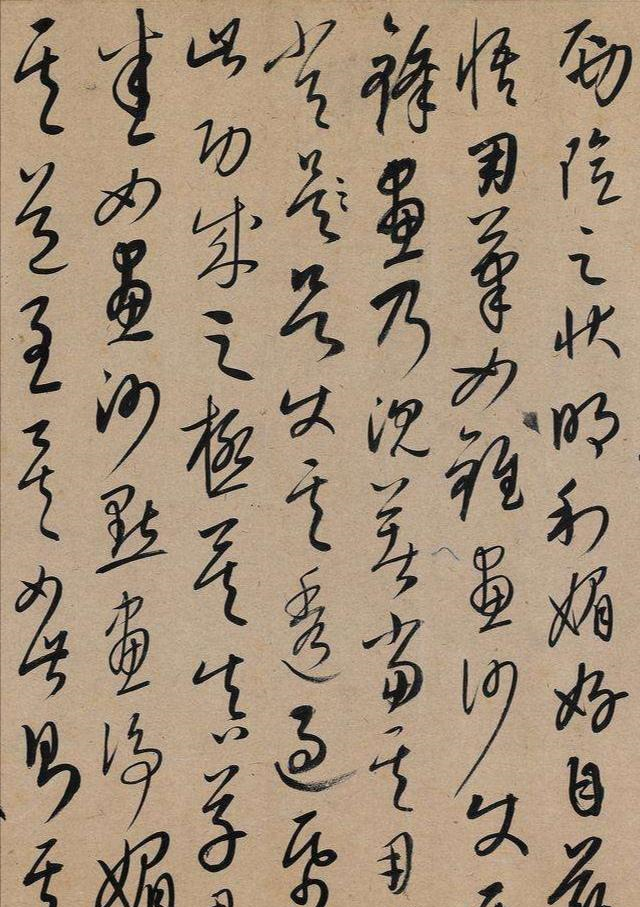 勁險之狀明利媚好自茲
悟用筆如錐畫沙使其
鋒畫乃沉著當其用
常使其透過紙
此功成之極矣真草用
悉如畫沙點畫淨媚
其道至矣如此則其